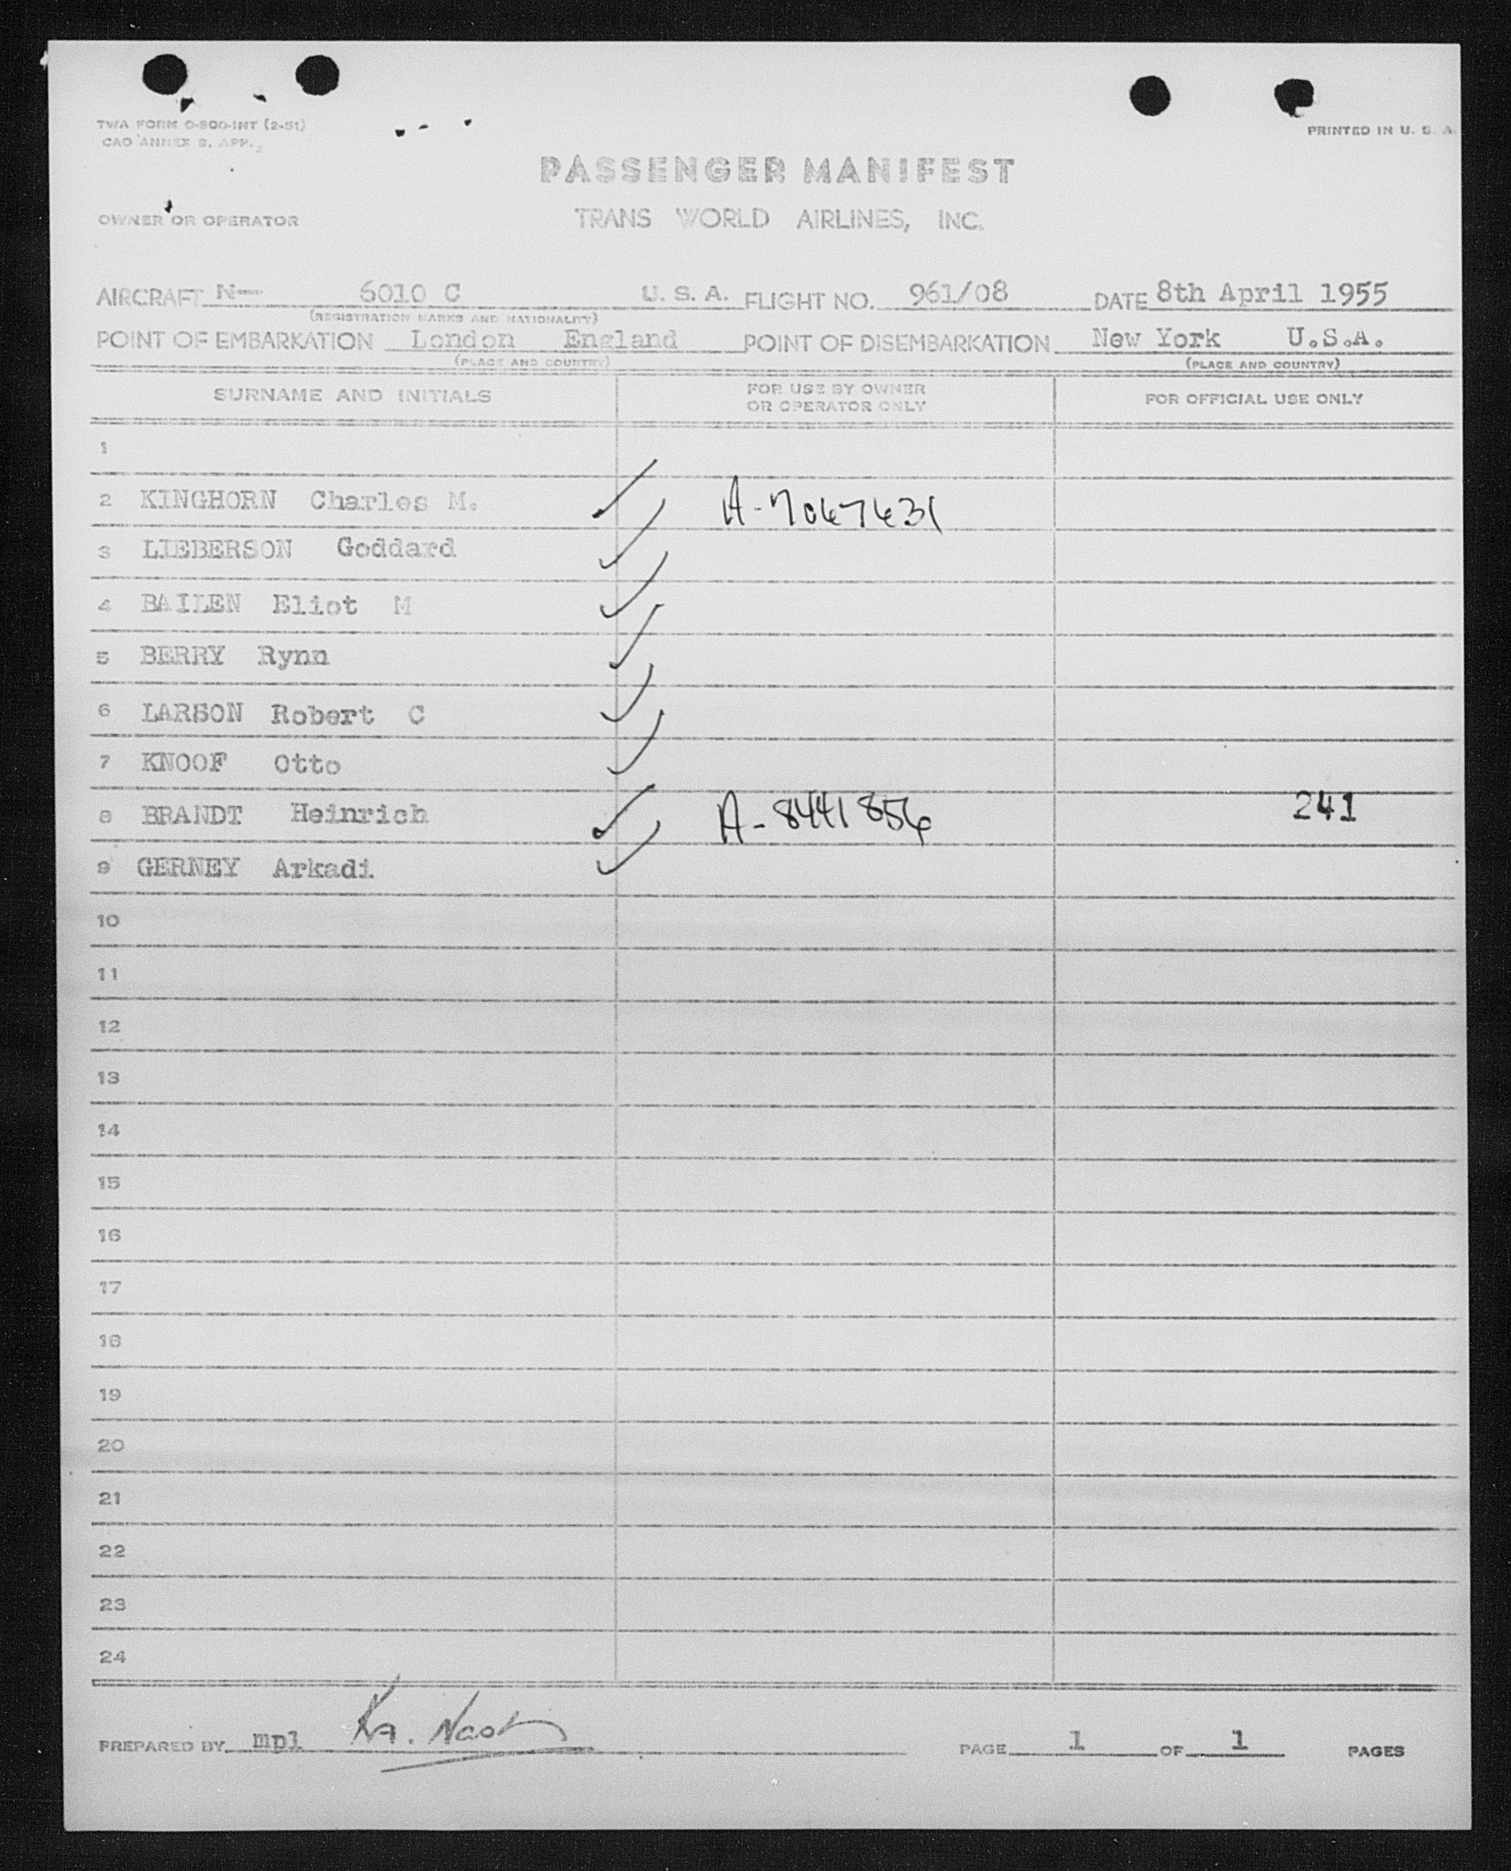 TWA FORM O-800-INT (2-51)
CAO ANNEX 9, APP.
PRINTED IN U. S. A.
PASSENGER MANIFEST
OWNER OR OPERATOR TRANS WORLD AIRLINES, INC.
AIRCRAFT N— 6010 C U. S. A. FLIGHT NO. 961/08 DATE 8th April 1955
(REGISTRATION MARKS AND NATIONALITY)
POINT OF EMBARKATION London England POINT OF DISEMBARKATION New York U.S.A.
(PLACE AND COUNTRY) (PLACE AND COUNTRY)
SURNAME AND INITIALS FOR USE BY OWNER OR OPERATOR ONLY FOR OFFICIAL USE ONLY
1
2 KINGHORN Charles M. ✓ A-7067631
3 LIEBERSON Goddard ✓
4 BAILEN Eliot M ✓
5 BERRY Rynn ✓
6 LARSON Robert C ✓
7 KNOOF Otto ✓
8 BRANDT Heinrich ✓ A-8441856 241
9 GERNEY Arkadi ✓
10
11
12
13
14
15
16
17
18
19
20
21
22
23
24
PREPARED BY mpl PAGE 1 OF 1 PAGES